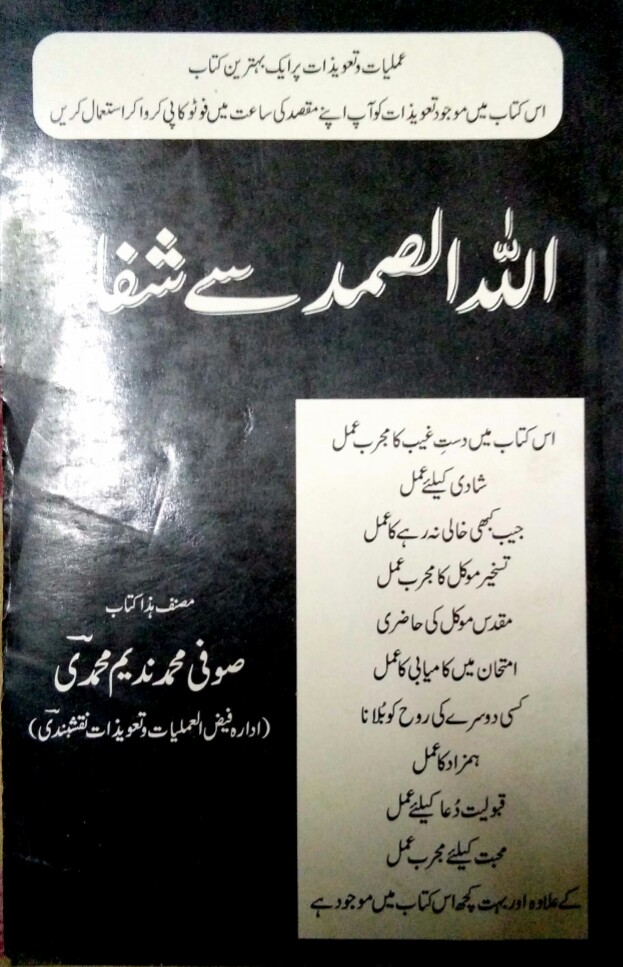 عملیات و تعویذات پر ایک بہترین کتاب
اس کتاب میں موجود تعویذات کو آپ اپنے مقصد کی ساعت میں فوٹو کاپی کروا کر استعمال کریں
اللہ الصمد سے شفا
اس کتاب میں دستِ غیب کا مجرب عمل
شادی کیلئے عمل
جیب کبھی خالی نہ رہے کا عمل
تسخیر موکل کا مجرب عمل
مقدس موکل کی حاضری
امتحان میں کامیابی کا عمل
کسی دوسرے کی روح کو بُلانا
ہمزاد کا عمل
قبولیت دُعا کیلئے عمل
محبت کیلئے مجرب عمل
کے علاوہ اور بہت کچھ اس کتاب میں موجود ہے
مصنف ہذا کتاب
صوفی محمد ندیم محمدی
(ادارہ فیض العملیات و تعویذات نقشبندی)